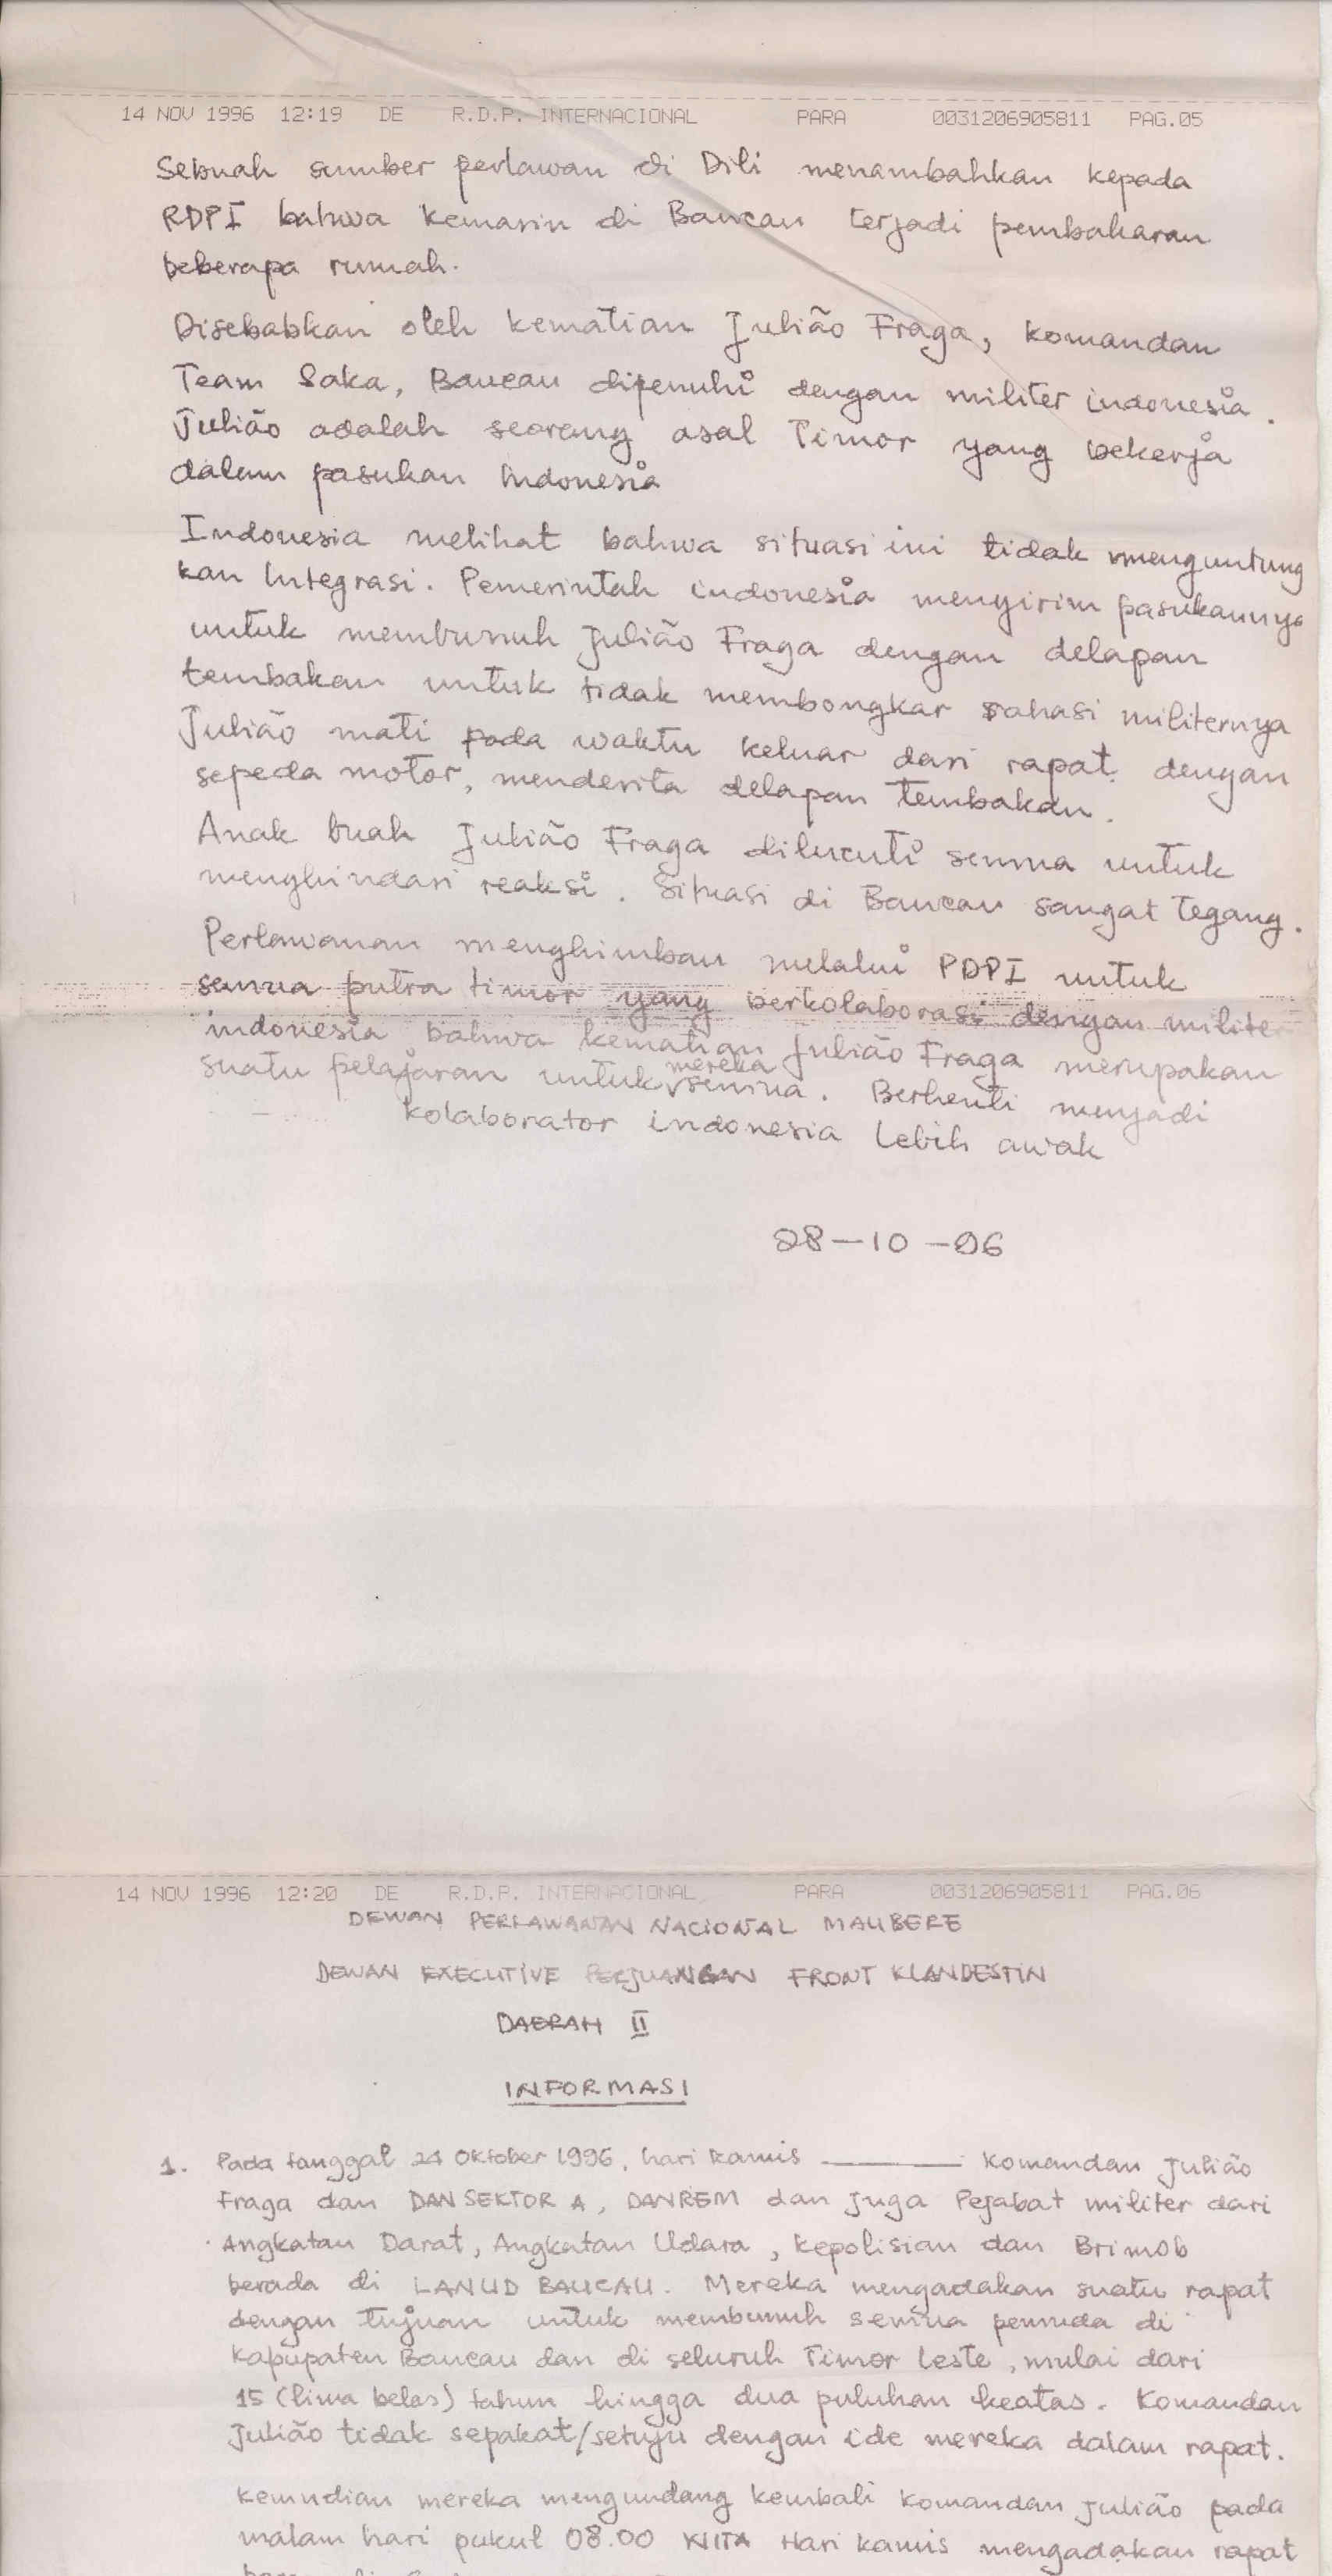 14 NOV 1996 12:19 DE R.D.P. INTERNACIONAL PARA 0031206905811 PAG.05
Sebuah sumber perlawan di Dili menambahkan kepada
RDPI bahwa kemarin di Baucau terjadi pembakaran
beberapa rumah.
Disebabkan oleh kematian Julião Fraga, komandan
Team Saka, Baucau dipenuhi dengan militer indonesia.
Julião adalah seorang asal Timor yang bekerja
dalam pasukan Indonesia
Indonesia melihat bahwa situasi ini tidak menguntung
kan Integrasi. Pemerintah indonesia mengirim pasukannya
untuk membunuh Julião Fraga dengan delapan
tembakan untuk tidak membongkar rahasi militernya
Julião mati pada waktu keluar dari rapat dengan
sepeda motor, menderita delapan tembakan.
Anak buah Julião Fraga dilucuti semua untuk
menghindari reaksi. Situasi di Baucau sangat tegang.
Perlawanan menghimbau melalui PDPI untuk
semua putra timor yang berkolaborasi dengan milite
indonesia bahwa kematian Julião Fraga merupakan
suatu pelajaran untuk mereka semua. Berhenti menjadi
kolaborator indonesia lebih awak
28-10-96
14 NOV 1996 12:20 DE R.D.P. INTERNACIONAL PARA 0031206905811 PAG.06
DEWAN PERLAWANAN NACIONAL MAUBERE
DEWAN EXECUTIVE PERJUANGAN FRONT KLANDESTIN
DAERAH II
INFORMASI
1. Pada tanggal 24 Oktober 1996, hari kamis ——— Komandan Julião
Fraga dan DAN SEKTOR A, DANREM dan juga Pejabat militer dari
Angkatan Darat, Angkatan Udara, kepolisian dan Brimob
berada di LANUD BAUCAU. Mereka mengadakan suatu rapat
dengan tujuan untuk membunuh semua pemuda di
Kapupaten Baucau dan di seluruh Timor Leste, mulai dari
15 (lima belas) tahun hingga dua puluhan keatas. Komandan
Julião tidak sepakat/setuju dengan ide mereka dalam rapat.
kemudian mereka mengundang kembali komandan Julião pada
malam hari pukul 08.00 WITA Hari kamis mengadakan rapat